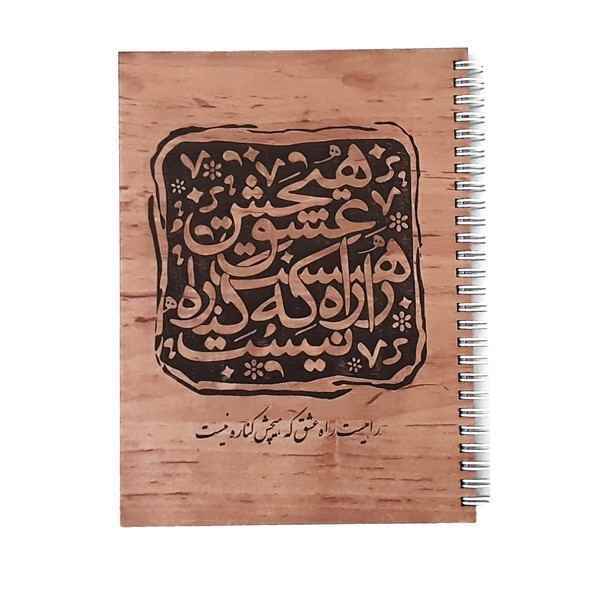 راهیست راه عشق که هیچش کناره نیست
راهیست راه عشق که هیچش کناره نیست